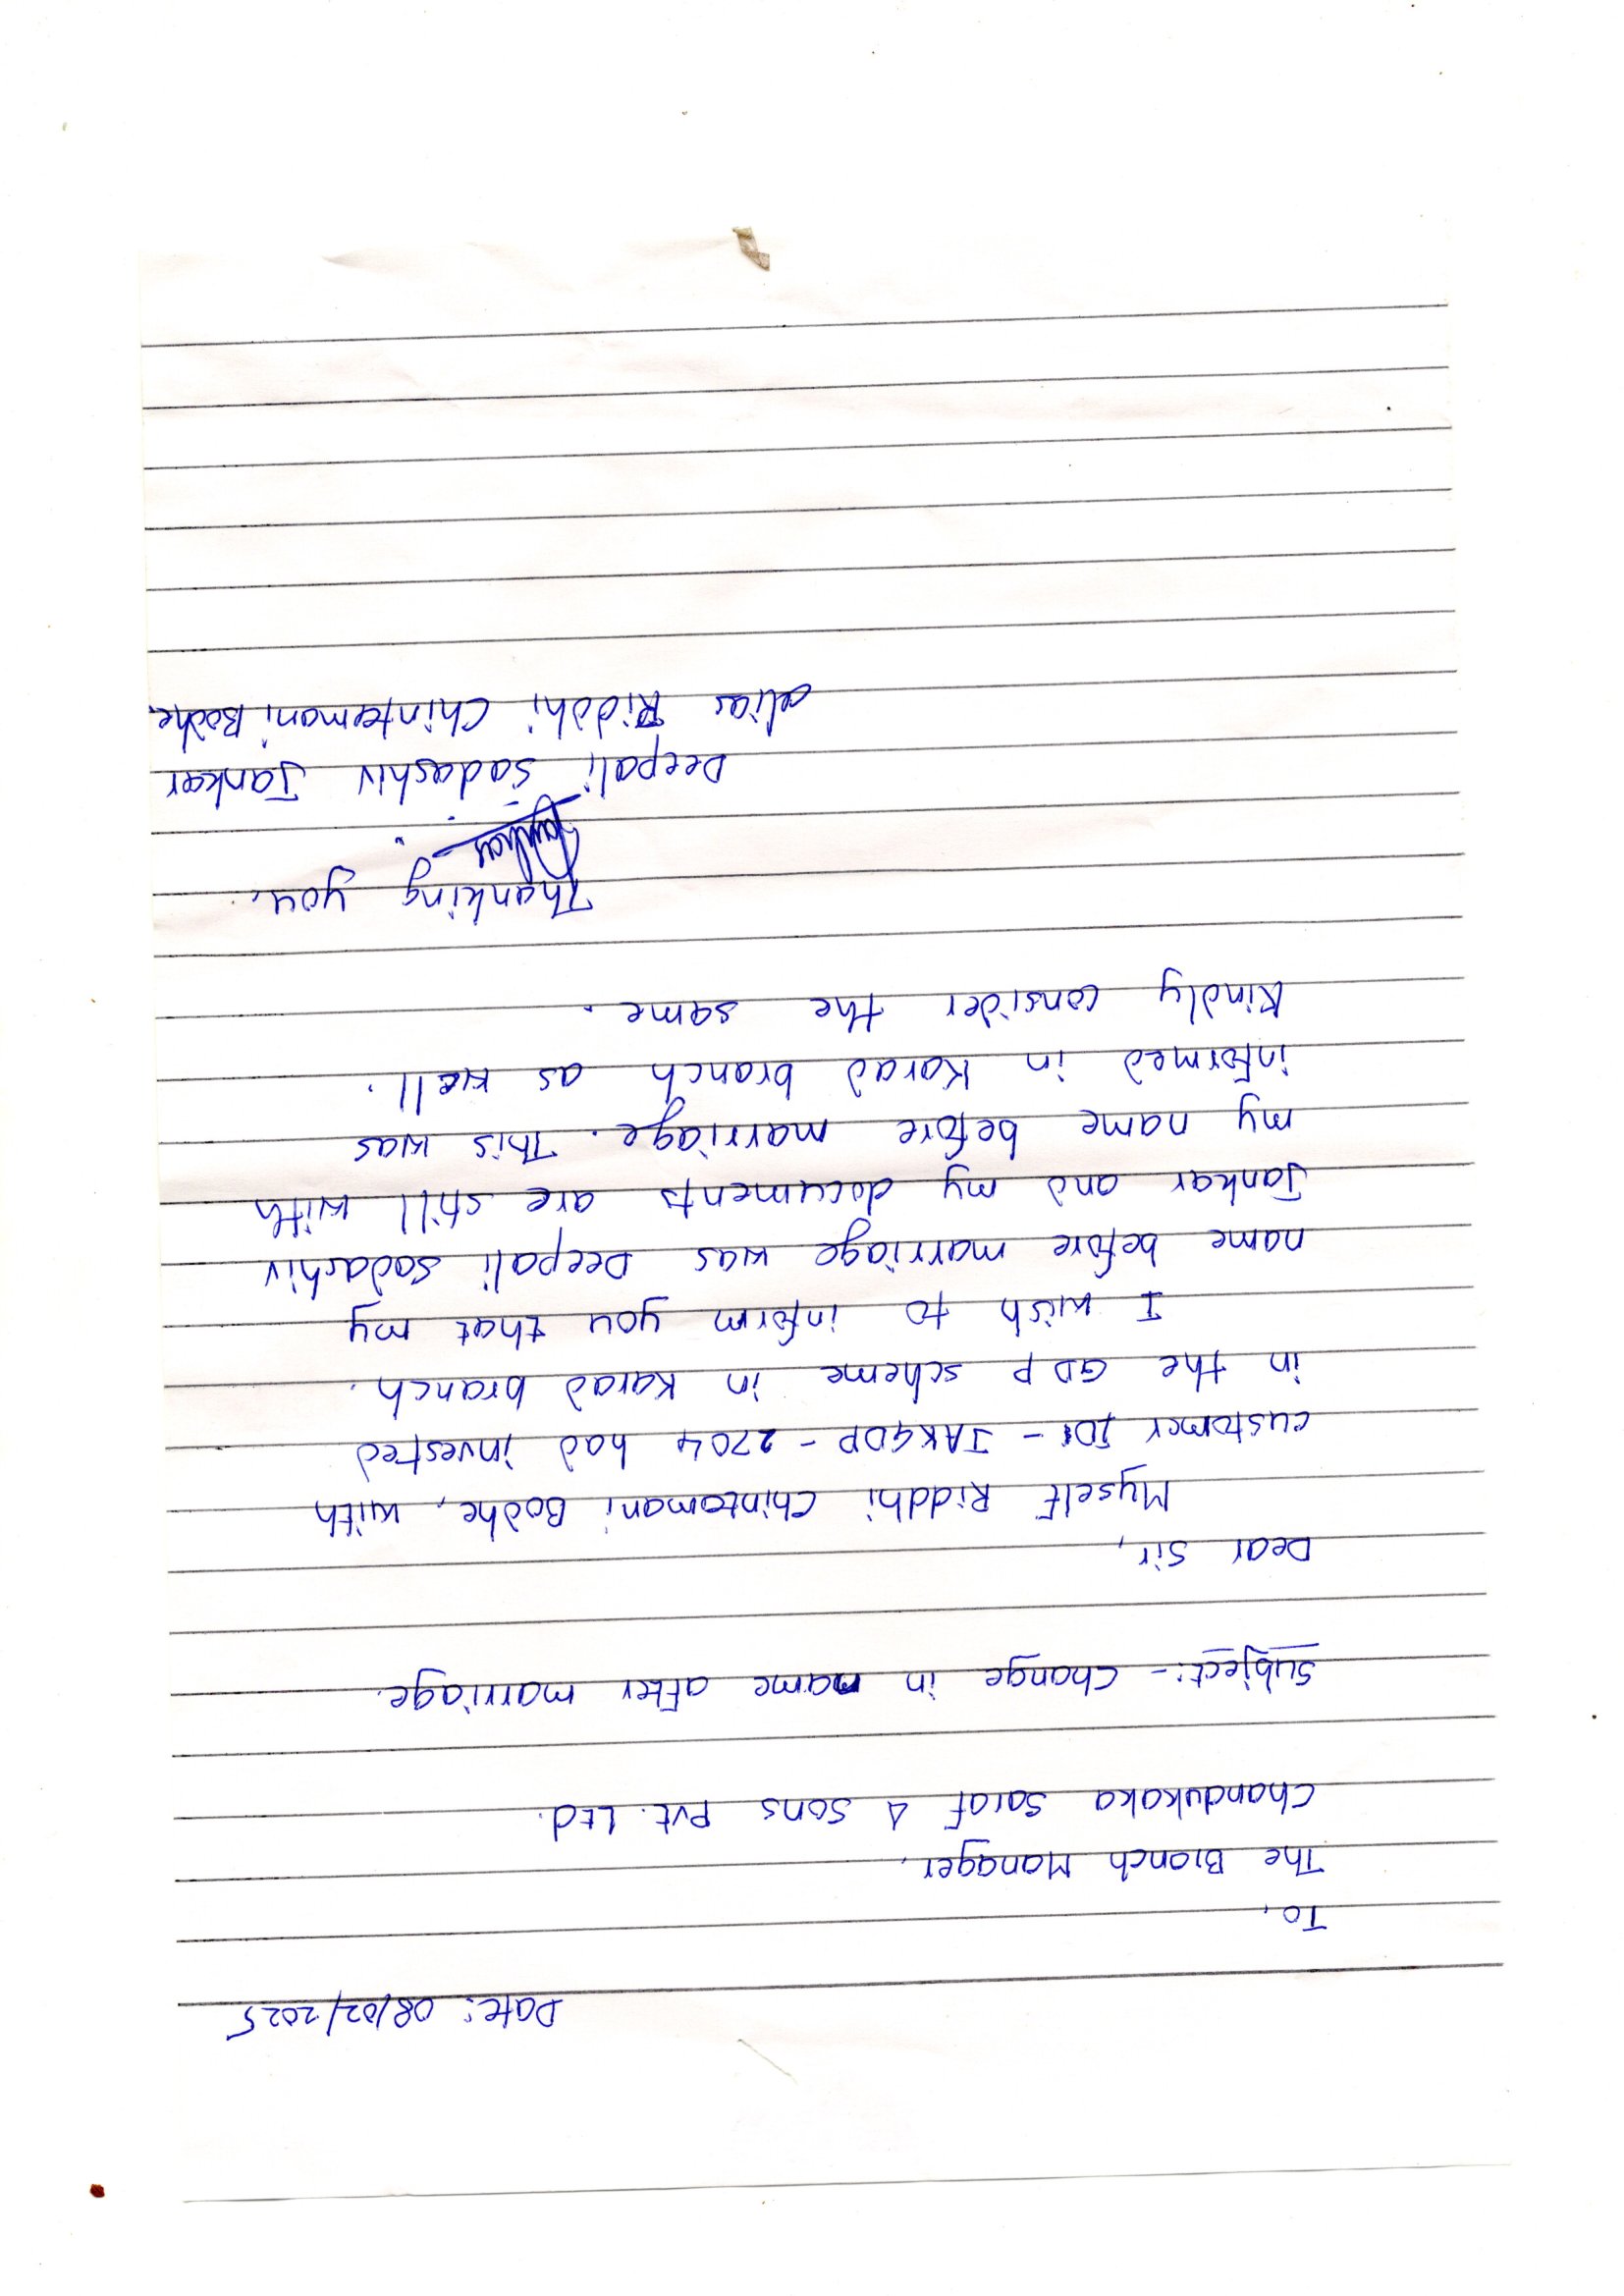 Date: 08/02/2025
To,
The Branch Manager,
Chandukaka Saraf & Sons Pvt. Ltd.
Subject:- Change in name after marriage.
Dear Sir,
Myself Riddhi Chintamani Bodhe, with
customer ID:- JAKGDP - 2704 had invested
in the GDP scheme in Karad branch.
I wish to inform you that my
name before marriage was Deepali Sadashiv
Jankar and my documents are still with
my name before marriage. This was
informed in Karad branch as well.
Kindly consider the same.
Thanking you.
Jankar
Deepali Sadashiv Jankar
alias Riddhi Chintamani Bodhe.